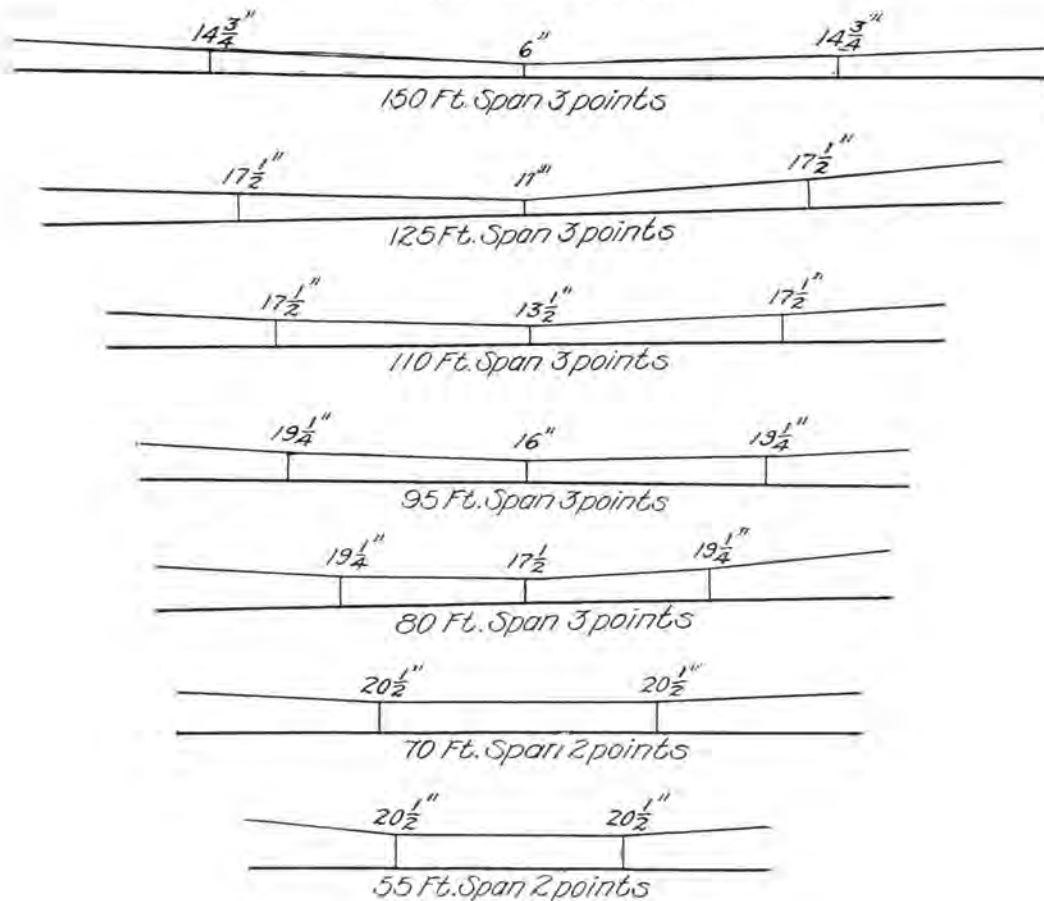 14 3/4" 6" 14 3/4"
150 Ft. Span 3 points
17 1/2" 11" 17 1/2"
125 Ft. Span 3 points
17 1/2" 13 1/2" 17 1/2"
110 Ft. Span 3 points
19 1/4" 16" 19 1/4"
95 Ft. Span 3 points
19 1/4" 17 1/2 19 1/4"
80 Ft. Span 3 points
20 1/2" 20 1/2"
70 Ft. Span 2 points
20 1/2" 20 1/2"
55 Ft. Span 2 points